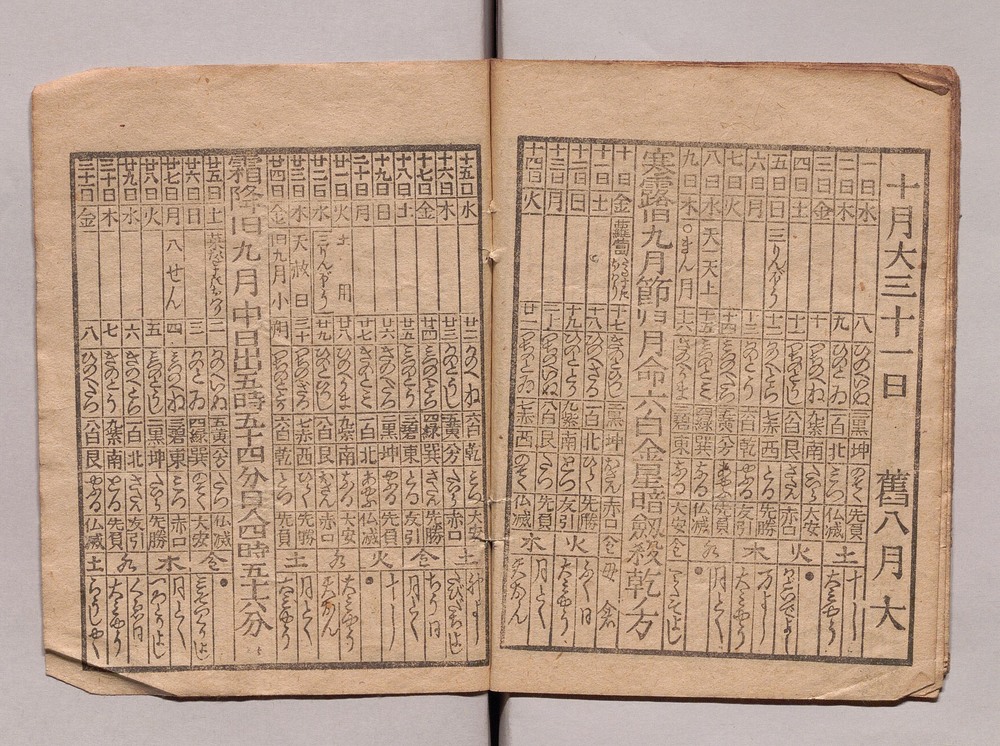 十月大三十一日 舊八月大
一日 水 八 ひのえいぬ 二黒坤 のぞく 先負
二日 木 九 ひのとゐ 一百北 みつ 仏滅 土 大みやう
三日 金 十 つちのえね 九紫南 たひら 大安
四日 土 十一 つちのとうし 八白艮 さだん 赤口 火
五日 日 三りんぼう 十二 かのえとら 七赤西 とる 先勝 万よし
六日 月 十三 かのとう 六白乾 やぶる 友引 木 大みやう
七日 火 十四 みづのえたつ 五黄兮 あやふ 先負 月とく
八日 水 天一天上 十五 みづのとみ 四緑巽 なる 仏滅 水
九日 木 ○まん月 十六 きのえうま 三碧東 なる 大安 金
寒露旧九月節 旧月命六白金星暗劔殺乾ノ方
十日 金 十七 きのとひつじ 二黒坤 をさん 赤口 母倉
十一日 土 十八 ひのえさる 一百北 ひらく 先勝 金 ふく日
十二日 日 十九 ひのととり 九紫南 とづ 友引 火 大みやう
十三日 月 二十 つちのえいぬ 八白艮 たつ 先負 月とく
十四日 火 廿一 つちのとゐ 七赤西 のぞく 仏滅 水 天おん
十五日 水 廿二 かのえね 六白乾 みつ 大安 土
十六日 木 廿三 かのとうし 五黄兮 たひら 赤口
十七日 金 廿四 みづのえとら 四緑巽 さだん 先勝 金
十八日 土 廿五 みづのとう 三碧東 とる 友引 月とく
十九日 日 廿六 きのえたつ 二黒坤 やぶる 先負 火
二十日 月 廿七 きのとみ 一白北 あやふ 仏滅
廿一日 火 土用 廿八 ひのえうま 九紫南 なる 大安 水
廿二日 水 三りんぼう 廿九 ひのとひつじ 八白艮 をさん 赤口 天おん
廿三日 木 天赦日 三十 つちのえさる 七赤西 ひらく 先勝 土 月とく
廿四日 金 旧九月小朔 つちのととり 六白乾 とづ 先負 大みやう
霜降旧九月中 日出五時五十四分日入四時五十六分
廿五日 土 二 かのえいぬ 五黄兮 たつ 仏滅 金
廿六日 日 三 かのとゐ 四緑巽 のぞく 大安
廿七日 月 八せん 四 みづのえね 三碧東 みつ 赤口 木 月とく
廿八日 火 五 みづのとうし 二黒坤 たひら 先勝
廿九日 水 六 きのえとら 一百北 さだん 友引 水
三十日 木 七 きのとう 九紫南 とる 先負 大みやう
三十一日 金 八 ひのえたつ 八白艮 やぶる 仏滅 土